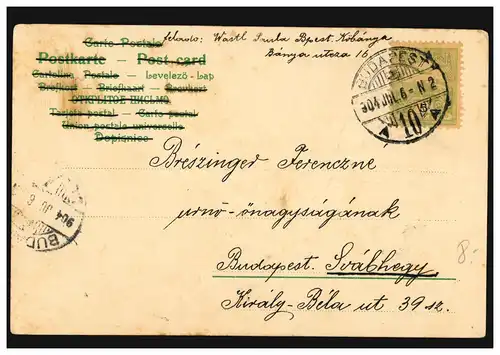 Carte Postale
feladó: Wastl Gyula Bpest. Kőbánya
Postkarte – Post card
Bánya utcza 16
Cartolina Postale – Levelező-Lap
Brefkort – Briefkaart – Brevkort
ОТКРЫТОЕ ПИСЬМО
Tarjeta postal – Carta postal
Union postale universelle
Dopisnice
BUDAPEST
904 JUL. 6 – N 2
10
Brészinger Ferenczne
urnő-önagyságának
904
BUD
Budapest. Svábhegy
8.-
Király-Béla ut 39 sz.